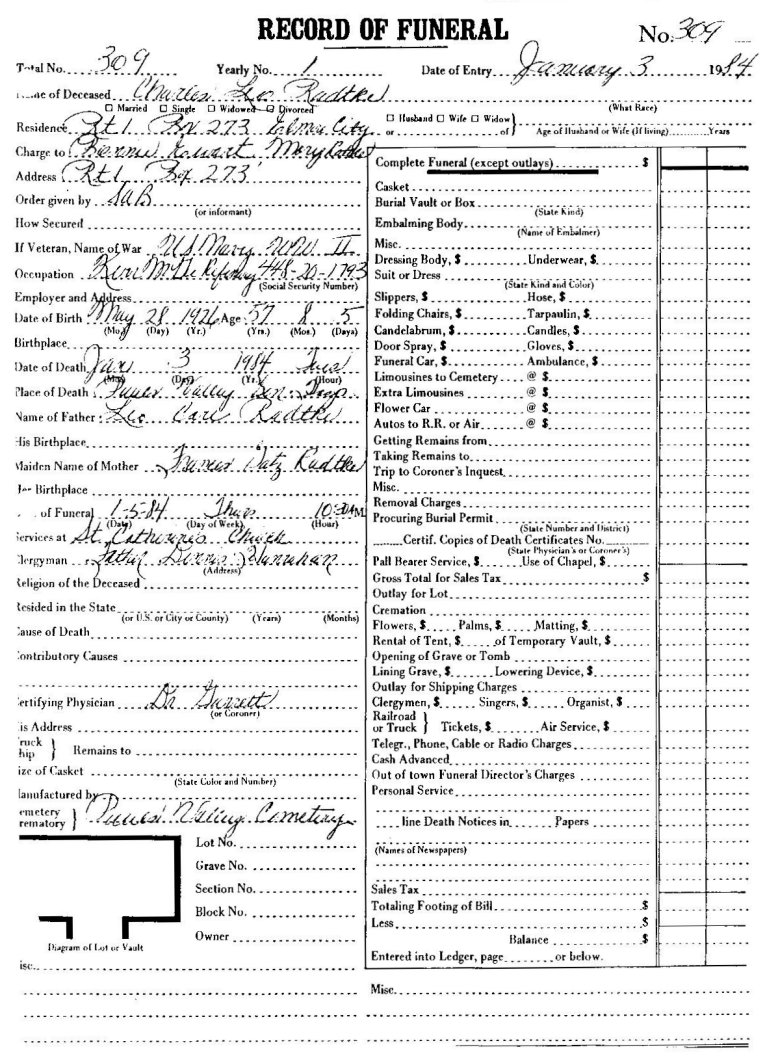 RECORD OF FUNERAL No. 309
Total No. 309 Yearly No. 1 Date of Entry January 3 1984
me of Deceased Charles Leo Radtke
☐ Married ☐ Single ☐ Widowed ☐ Divorced (What Race)
Residence Rt 1 Box 273 City
☐ Husband ☐ Wife ☐ Widow }
or of } Age of Husband or Wife (If living) Years
Charge to Mary
Address Rt 1 Box 273
Order given by
(or informant)
How Secured
If Veteran, Name of War US Navy WW II
Occupation 448-20-1793
(Social Security Number)
Employer and Address
Date of Birth May 28 1926 Age 57 8 5
(Mo.) (Day) (Yr.) (Yrs.) (Mos.) (Days)
Birthplace
Date of Death Jan 3 1984 Tues
(Mo.) (Day) (Yr.) (Hour)
Place of Death Valley
Name of Father Leo Carl Radtke
His Birthplace
Maiden Name of Mother Frances Radtke
Her Birthplace
of Funeral 1-5-84 Thurs 10:30AM
(Date) (Day of Week) (Hour)
Services at St. Catherines Church
Clergyman Father Dennis
(Address)
Religion of the Deceased
Resided in the State
(or U.S. or City or County) (Years) (Months)
Cause of Death
Contributory Causes
Certifying Physician Dr Garrett
(or Coroner)
is Address
ruck
hip } Remains to
ize of Casket
(State Color and Number)
Manufactured by
emetery
rematory } Valley Cemetery
Lot No.
Grave No.
Section No.
Block No.
Owner
Diagram of Lot or Vault
isc.
Complete Funeral (except outlays) $
Casket
Burial Vault or Box
(State Kind)
Embalming Body
(Name of Embalmer)
Misc.
Dressing Body, $ Underwear, $
Suit or Dress
(State Kind and Color)
Slippers, $ Hose, $
Folding Chairs, $ Tarpaulin, $
Candelabrum, $ Candles, $
Door Spray, $ Gloves, $
Funeral Car, $ Ambulance, $
Limousines to Cemetery @ $
Extra Limousines @ $
Flower Car @ $
Autos to R.R. or Air @ $
Getting Remains from
Taking Remains to
Trip to Coroner's Inquest
Misc.
Removal Charges
Procuring Burial Permit
(State Number and District)
Certif. Copies of Death Certificates No.
(State Physician's or Coroner's)
Pall Bearer Service, $ Use of Chapel, $
Gross Total for Sales Tax $
Outlay for Lot
Cremation
Flowers, $ Palms, $ Matting, $
Rental of Tent, $ of Temporary Vault, $
Opening of Grave or Tomb
Lining Grave, $ Lowering Device, $
Outlay for Shipping Charges
Clergymen, $ Singers, $ Organist, $
Railroad
or Truck } Tickets, $ Air Service, $
Telegr., Phone, Cable or Radio Charges
Cash Advanced
Out of town Funeral Director's Charges
Personal Service
line Death Notices in Papers
(Names of Newspapers)
Sales Tax
Totaling Footing of Bill $
Less $
Balance $
Entered into Ledger, page or below.
Misc.